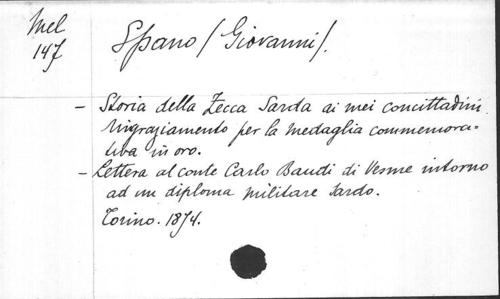 Mel
147
Spano (Giovanni).
- Storia della Zecca Sarda ai mei concittadini
ringraziamento per la medaglia commemora-
tiva in oro.
- Lettera al conte Carlo Baudi di Vesme intorno
ad un diploma militare sardo.
Torino. 1874.